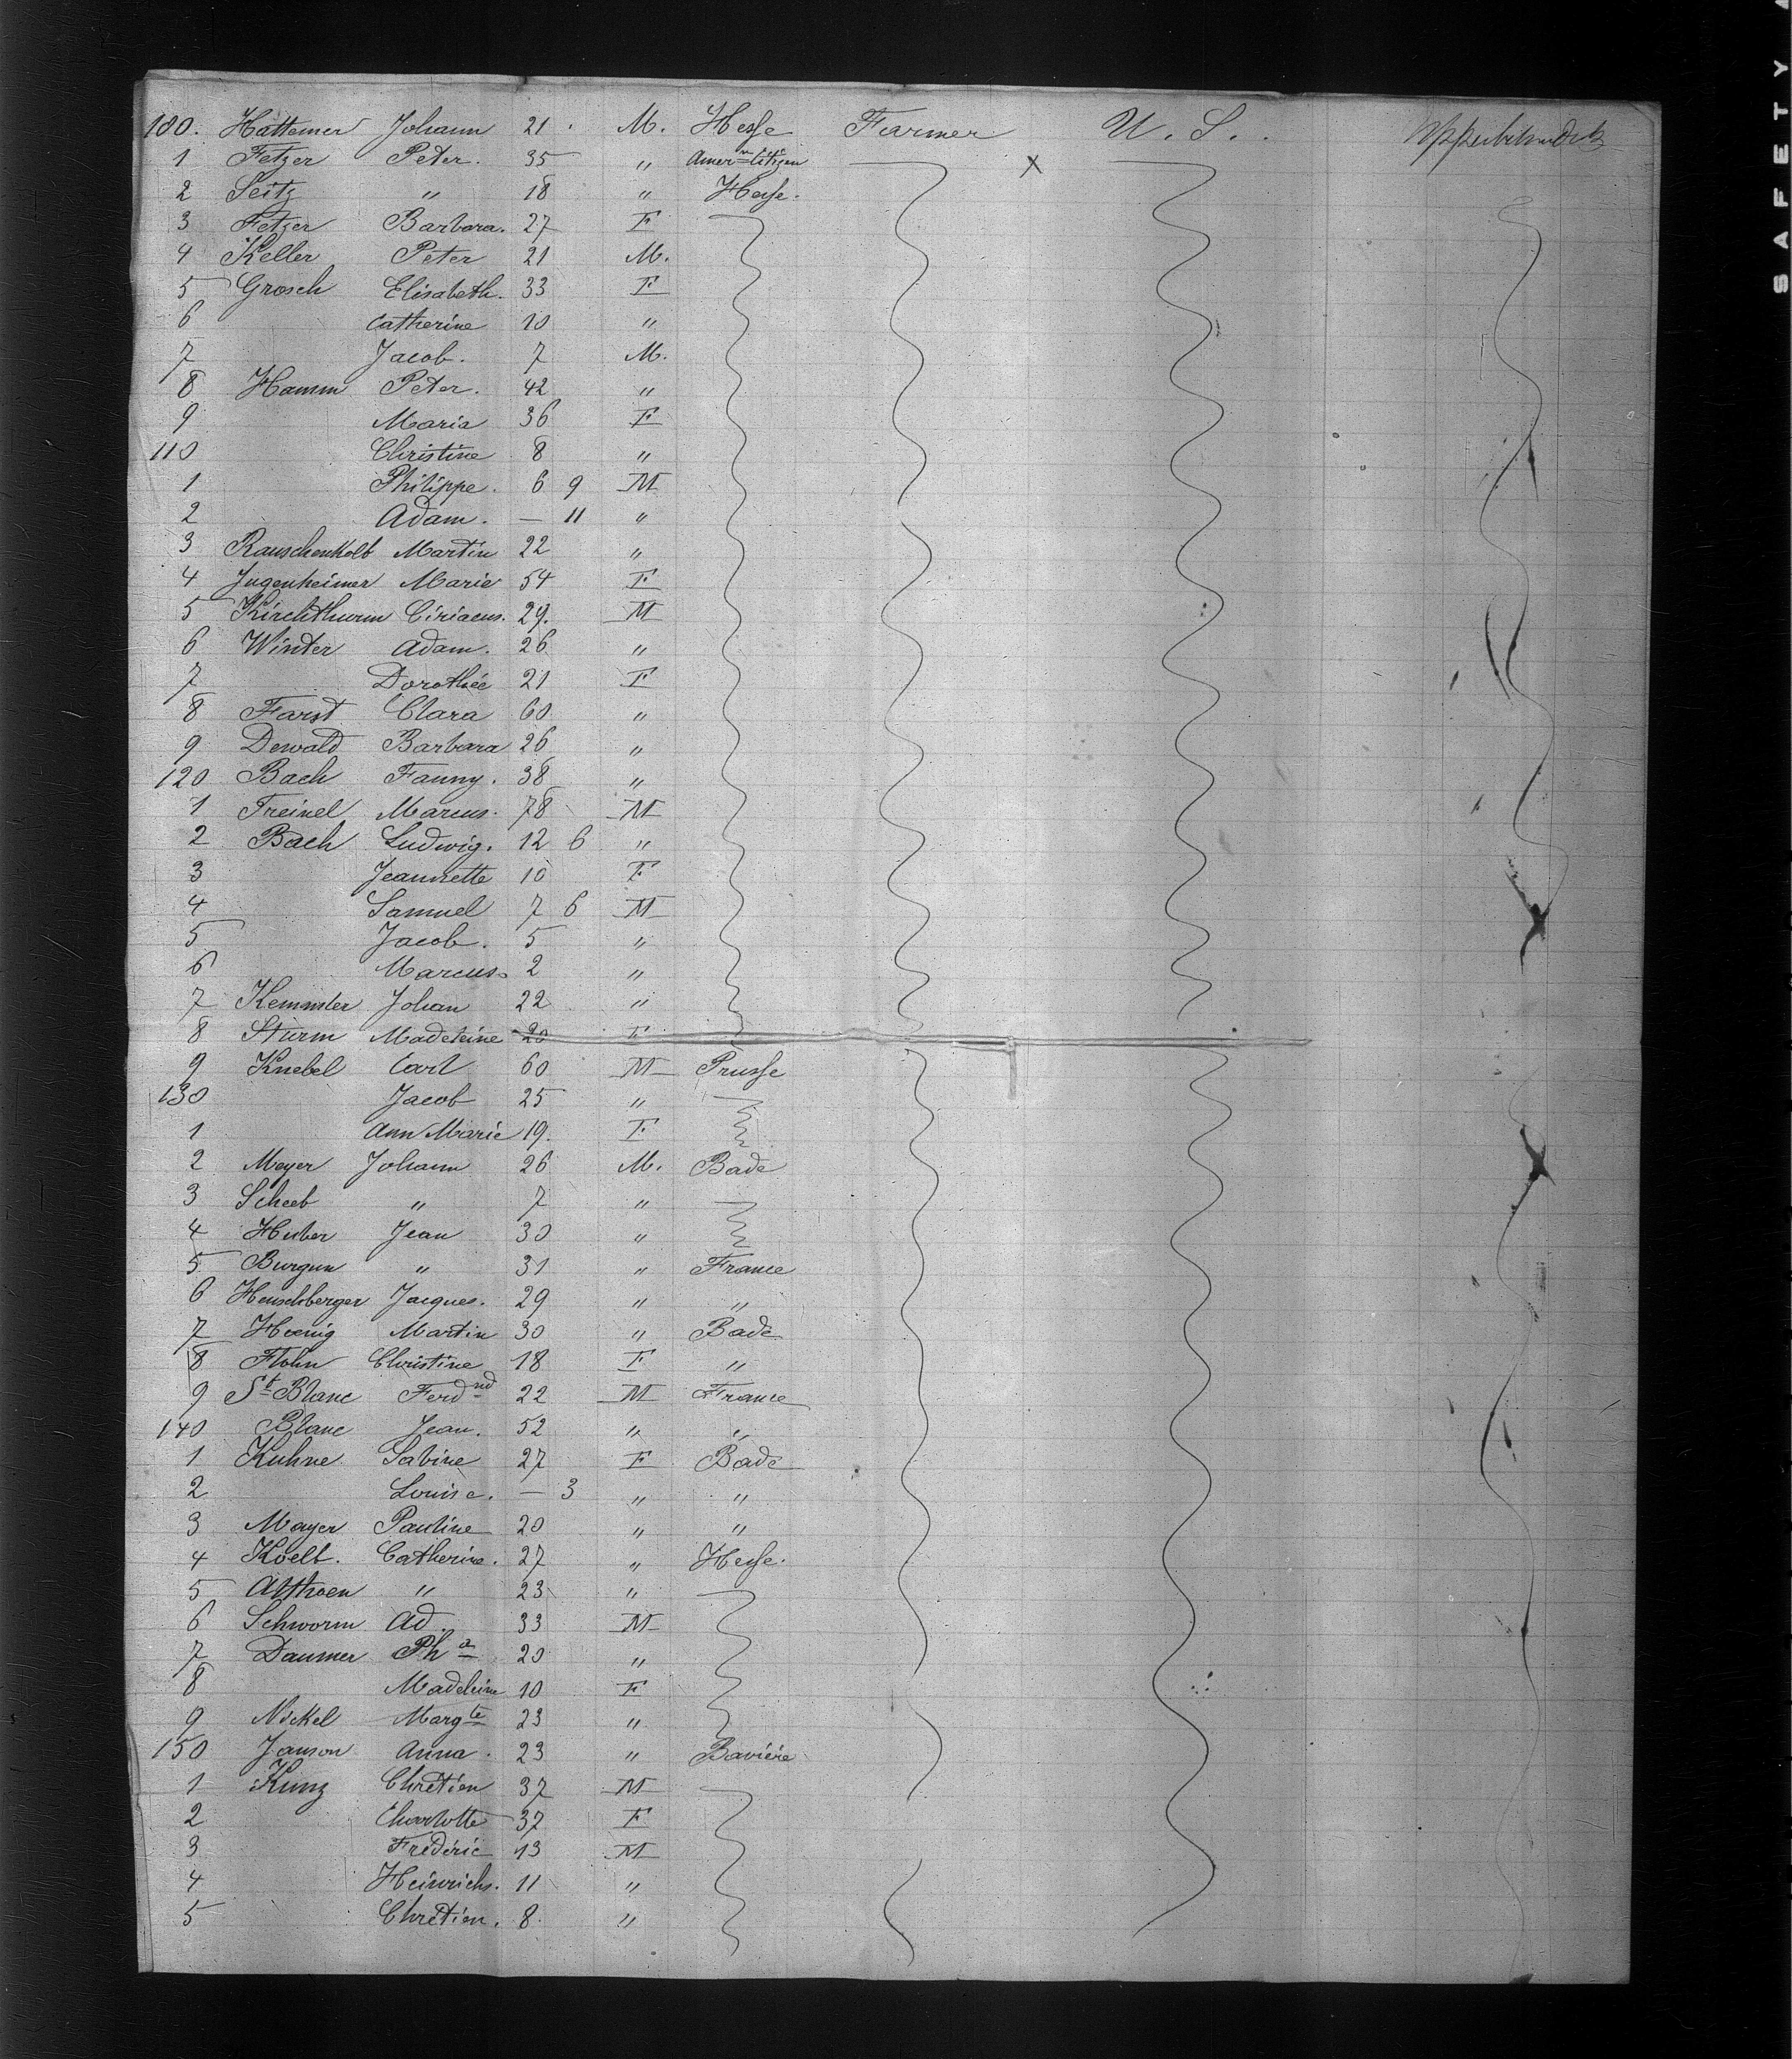 180. Hattemer Johann 21 M. Hesse Farmer U. S.
1 Fetzer Peter. 35 " Amern Citizen X
2 Seitz " 18 " Hesse.
3 Fetzer Barbara. 27 F
4 Keller Peter 21 M.
5 Grosch Elisabeth. 33 F
6 Catherine 10 "
7 Jacob. 7 M.
8 Hamm Peter. 42 "
9 Maria 36 F
110 Christine 8 "
1 Philippe. 6 9 M
2 Adam. — 11 "
3 Rauschenkolb Martin 22 "
4 Jugenheimer Marie 54 F
5 Kirchthurm Ciriacus. 29. M
6 Winter Adam. 26 "
7 Dorothée 21 F
8 Farst Clara 60 "
9 Dewald Barbara 26 "
120 Bach Fanny. 38 "
1 Treinel Marcus. 78 M
2 Bach Ludwig. 12 6 "
3 Jeannette 10 F
4 Samuel 7 6 M
5 Jacob. 5 "
6 Marcus 2 "
7 Kemmler Johan 22 "
8 Sturm Madeleine 20 F
9 Knebel Carl 60 M Prusse
130 Jacob 25 "
1 Ann Marie 19. F
2 Meyer Johann 26 M. Bade
3 Scheeb " 7 "
4 Huber Jean 30 "
5 Burgun " 31 " France
6 Henschberger Jacques. 29 " "
7 Hoenig Martin 30 " Bade
8 Flohn Christine 18 F "
9 St Blanc Ferdnd 22 M France
140 Blanc Jean. 52 " "
1 Kuhne Sabine 27 F Bade
2 Louise. — 3 " "
3 Mayer Pauline 20 " "
4 Koelt. Catherine. 27 " Hesse.
5 Althoen " 23 "
6 Schworm Ad. 33 M
7 Daumer Ph 20 "
8 Madeleine 10 F
9 Nickel Margte 23 "
150 Janson Anna. 23 " Bavière
1 Kunz Chretien 37 M
2 Charlotte 37 F
3 Frédéric 13 M
4 Heinrichs. 11 "
5 Chrétien. 8. "
SAFETY